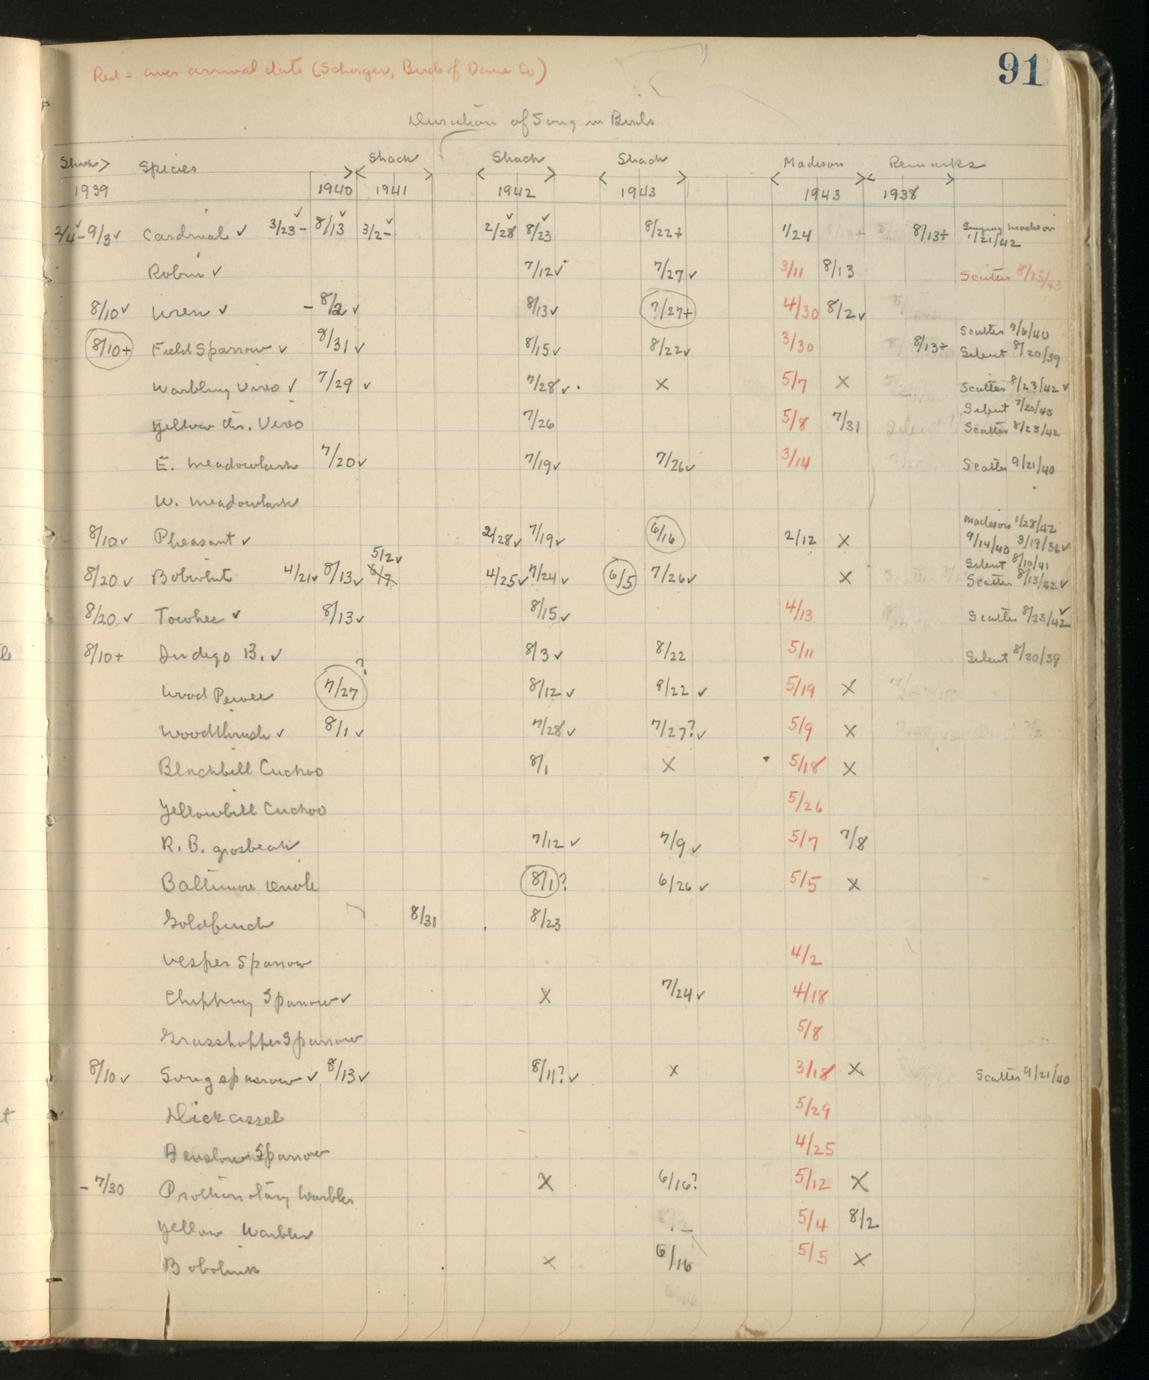 91
Red = aver arrival date (Schorger, Birds of Dane Co)
Duration of Song in Birds
Shack Species Shack Shack Shack Madison Remarks
1939 1940 1941 1942 1943 1943 1938
2/4 - 9/3 ✓ Cardinal ✓ 3/23 - 8/13 3/2 - 2/28 8/23 8/22+ 1/24 8/13+ Singing Madison 1/21/42
Robin ✓ 7/12 ✓ 7/27 ✓ 3/11 8/13 Scatter 8/23/43
8/10 ✓ Wren ✓ - 8/2 ✓ 8/13 ✓ 7/27+ 4/30 8/2 ✓
8/10+ Field Sparrow ✓ 8/31 ✓ 8/15 ✓ 8/22 ✓ 3/30 8/13+ Scatter 9/6/40 Silent 8/20/39
Warbling Vireo ✓ 7/29 ✓ 7/28 ✓ X 5/7 X Scatter 8/23/42 ✓
Yellow thr. Vireo 7/26 5/8 7/31 Silent 7/25/43 Scatter 8/23/42
E. meadowlark 7/20 ✓ 7/19 ✓ 7/26 ✓ 3/14 Scatter 9/21/40
W. meadowlark
8/10 ✓ Pheasant ✓ 2/28 ✓ 7/19 ✓ 6/16 2/12 X Madison 1/28/42 9/14/40 3/19/36 ✓
8/20 ✓ Bobwhite 4/21 ✓ 8/13 ✓ 5/2 ✓ 4/25 ✓ 7/24 ✓ 6/5 7/26 ✓ X Silent 8/10/41 Scatter 8/13/42 ✓
8/20 ✓ Towhee ✓ 8/13 ✓ 8/15 ✓ 4/13 Scatter 8/23/42 ✓
8/10+ Indigo B. ✓ 8/3 ✓ 8/22 5/11 Silent 8/20/39
Wood Pewee 7/27 ? 8/12 ✓ 8/22 ✓ 5/19 X
Woodthrush ✓ 8/1 ✓ 7/28 ✓ 7/27? ✓ 5/9 X
Blackbill Cuckoo 8/1 X 5/18 X
Yellowbill Cuckoo 5/26
R. B. grosbeak 7/12 ✓ 7/9 ✓ 5/7 7/8
Baltimore Oriole 8/1? 6/26 ✓ 5/5 X
Goldfinch 8/31 8/23
Vesper Sparrow 4/2
Chipping Sparrow ✓ X 7/24 ✓ 4/18
Grasshopper Sparrow 5/8
8/10 ✓ Song sparrow ✓ 8/13 ✓ 8/11? ✓ X 3/18 X Scatter 9/21/40
Dickcissel 5/29
Henslow Sparrow 4/25
- 7/30 Prothonotary Warbler X 6/16? 5/12 X
Yellow Warbler 5/4 8/2
Bobolink X 6/16 5/5 X